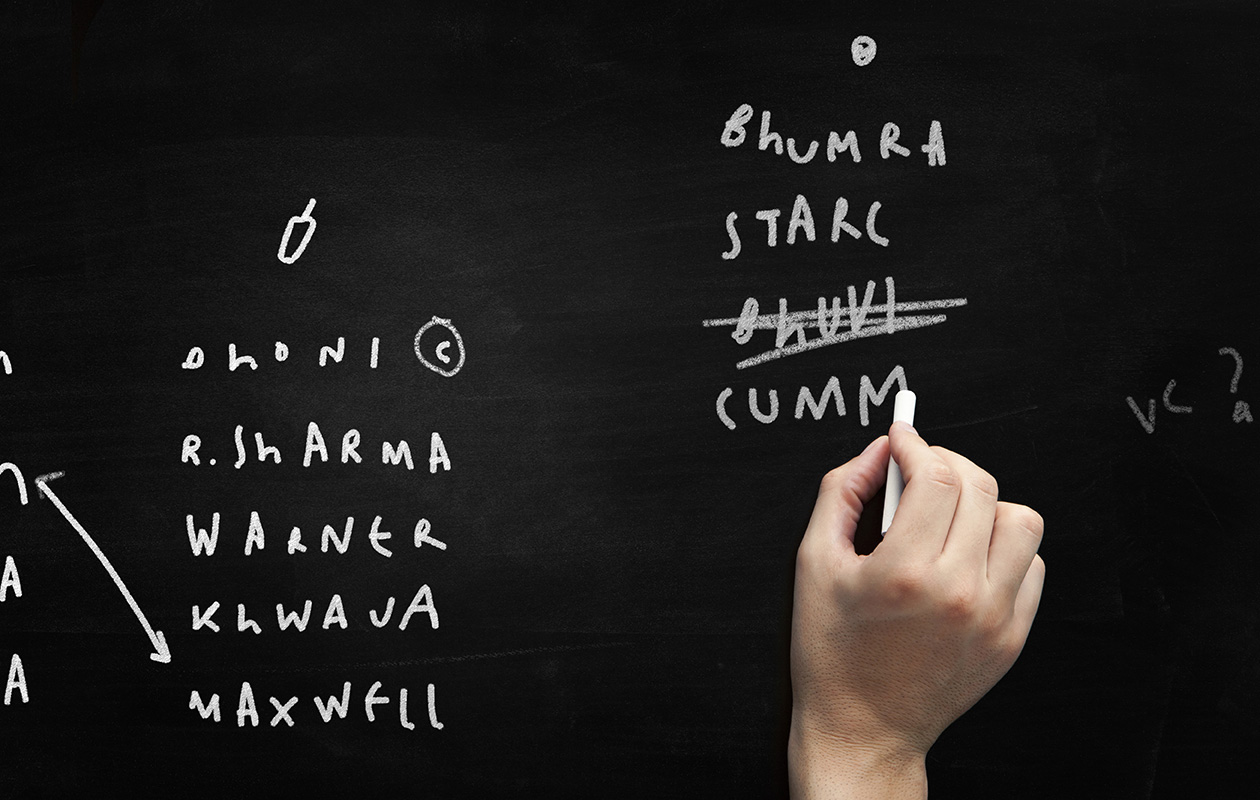 DhONI C
R.ShARMA
WARNER
KhWAJA
MAXWEll
BhUMRA
STARC
BhUVI
CUMM
VC ?